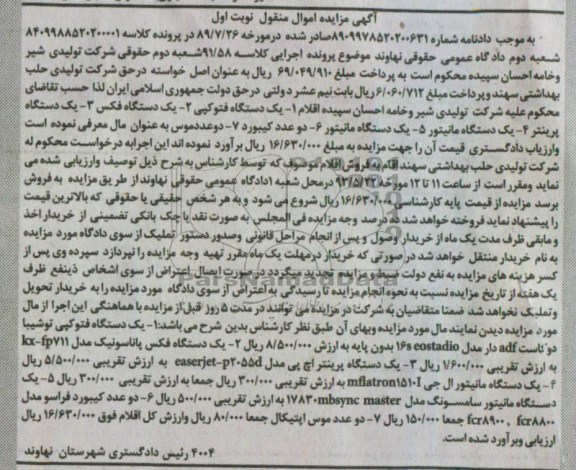 آگهی مزایده اموال منقول نوبت اول
به موجب دادنامه شماره ۸۹۰۹۹۷۸۵۲۰۲۰۰۶۳۱صادر شده درمورخه ۸۹/۷/۲۶ در پرونده کلاسه ۸۴۰۹۹۸۸۵۲۰۲۰۰۰۰۱
شعبه دوم دادگاه عمومی حقوقی نهاوند موضوع پرونده اجرایی کلاسه ۹۱/۵۸شعبه دوم حقوقی شرکت تولیدی شیر
وخامه احسان سپیده محکوم است به پرداخت مبلغ ۶۹/۰۴۹/۹۱۰ ریال به عنوان اصل خواسته درحق شرکت تولیدی حلب
بهداشتی سهند وپرداخت مبلغ ۶/۰۶۰/۷۱۲ریال بابت نیم عشر دولتی درحق دولت جمهوری اسلامی ایران لذا حسب تقاضای
محکوم علیه شرکت تولیدی شیر وخامه احسان سپیده اقلام ۱- یک دستگاه فتوکپی ۲- یک دستگاه فکس ۳- یک دستگاه
پرینتر ۴- یک دستگاه مانیتور ۵- یک دستگاه مانیتور ۶- دو عدد کیبورد ۷- دوعددموس به عنوان مال معرفی نموده است
وارزیاب دادگستری قیمت آن را جهت مزایده به مبلغ ۱۶/۶۳۰/۰۰۰ ریال برآورد نموده اند این اجرابه درخواست محکوم له
شرکت تولیدی حلب بهداشتی سهند اقدام به فروش اقلام موصوف که توسط کارشناس به شرح ذیل توصیف وارزیابی شده می
نماید ومقرر است از ساعت ۱۱ تا ۱۲ مورخه ۹۳/۵/۲۲ درمحل شعبه ۱دادگاه عمومی حقوقی نهاوند از طریق مزایده به فروش
برسد مزایده از قیمت پایه کارشناسی ۱۶/۶۳۰/۰۰۰ ریال شروع می شود و به هر شخص حقیقی یا حقوقی که بالاترین قیمت
را پیشنهاد نماید فروخته خواهد شد ده درصد وجه مزایده فی المجلس به صورت نقد یا چک بانکی تضمینی از خریدار اخذ
و مابقی ظرف مدت یک ماه از خریدار وصول و پس از انجام مراحل قانونی وصدور دستور تملیک از سوی دادگاه مورد مزایده
به نام خریدار منتقل خواهد شد درصورتی که خریدار درمهلت یک ماه مقرر تهیه وجه مزایده را نپردازد سپرده وی پس از
کسر هزینه های مزایده به نفع دولت ضبط و مزایده تجدید میگردد در صورت ایصال اعتراض از سوی اشخاص ذینفع ظرف
یک هفته از تاریخ مزایده نسبت به نحوه انجام مزایده تا رسیدگی به اعتراض از سوی دادگاه مورد مزایده را به خریدار تحویل
وتملیک نخواهد شد ضمنا متقاضیان به شرکت در مزایده می توانند در مدت ۵ روز قبل از مزایده با هماهنگی این اجرا از مال
مورد مزایده دیدن نمایند مال مورد مزایده وبهای آن طبق نظر کارشناس بدین شرح می باشد:۱- یک دستگاه فتوکپی توشیبا
دو کاست adf دار مدل 16s eostadio بدون پایه به ارزش ۸/۵۰۰/۰۰۰ ریال ۲- یک دستگاه فکس پاناسونیک مدل kx-fp711
به ارزش تقریبی ۱/۶۰۰/۰۰۰ ریال ۳- یک دستگاه پرینتر اچ پی مدل easerjet-p2055d به ارزش تقریبی ۵/۵۰۰/۰۰۰ ریال
۴- یک دستگاه مانیتور ال جی mflatron1510I به ارزش تقریبی ۳۰۰/۰۰۰ ریال جمعا به ارزش تقریبی ۳۰۰/۰۰۰ ریال ۵- یک
دستگاه مانیتور سامسونگ مدل 17830mbsync master به ارزش تقریبی ۵۰۰/۰۰۰ ریال ۶- دو عدد کیبورد فراسو مدل
fcr8900 , fcr8800 جمعا ۱۵۰/۰۰۰ ریال ۷- دو عدد موس اپتیکال جمعا ۸۰/۰۰۰ ریال وارزش کل اقلام فوق ۱۶/۶۳۰/۰۰۰ ریال
ارزیابی وبرآورد شده است.
۴۰۰۴ رئیس دادگستری شهرستان نهاوند
ParsNamadData